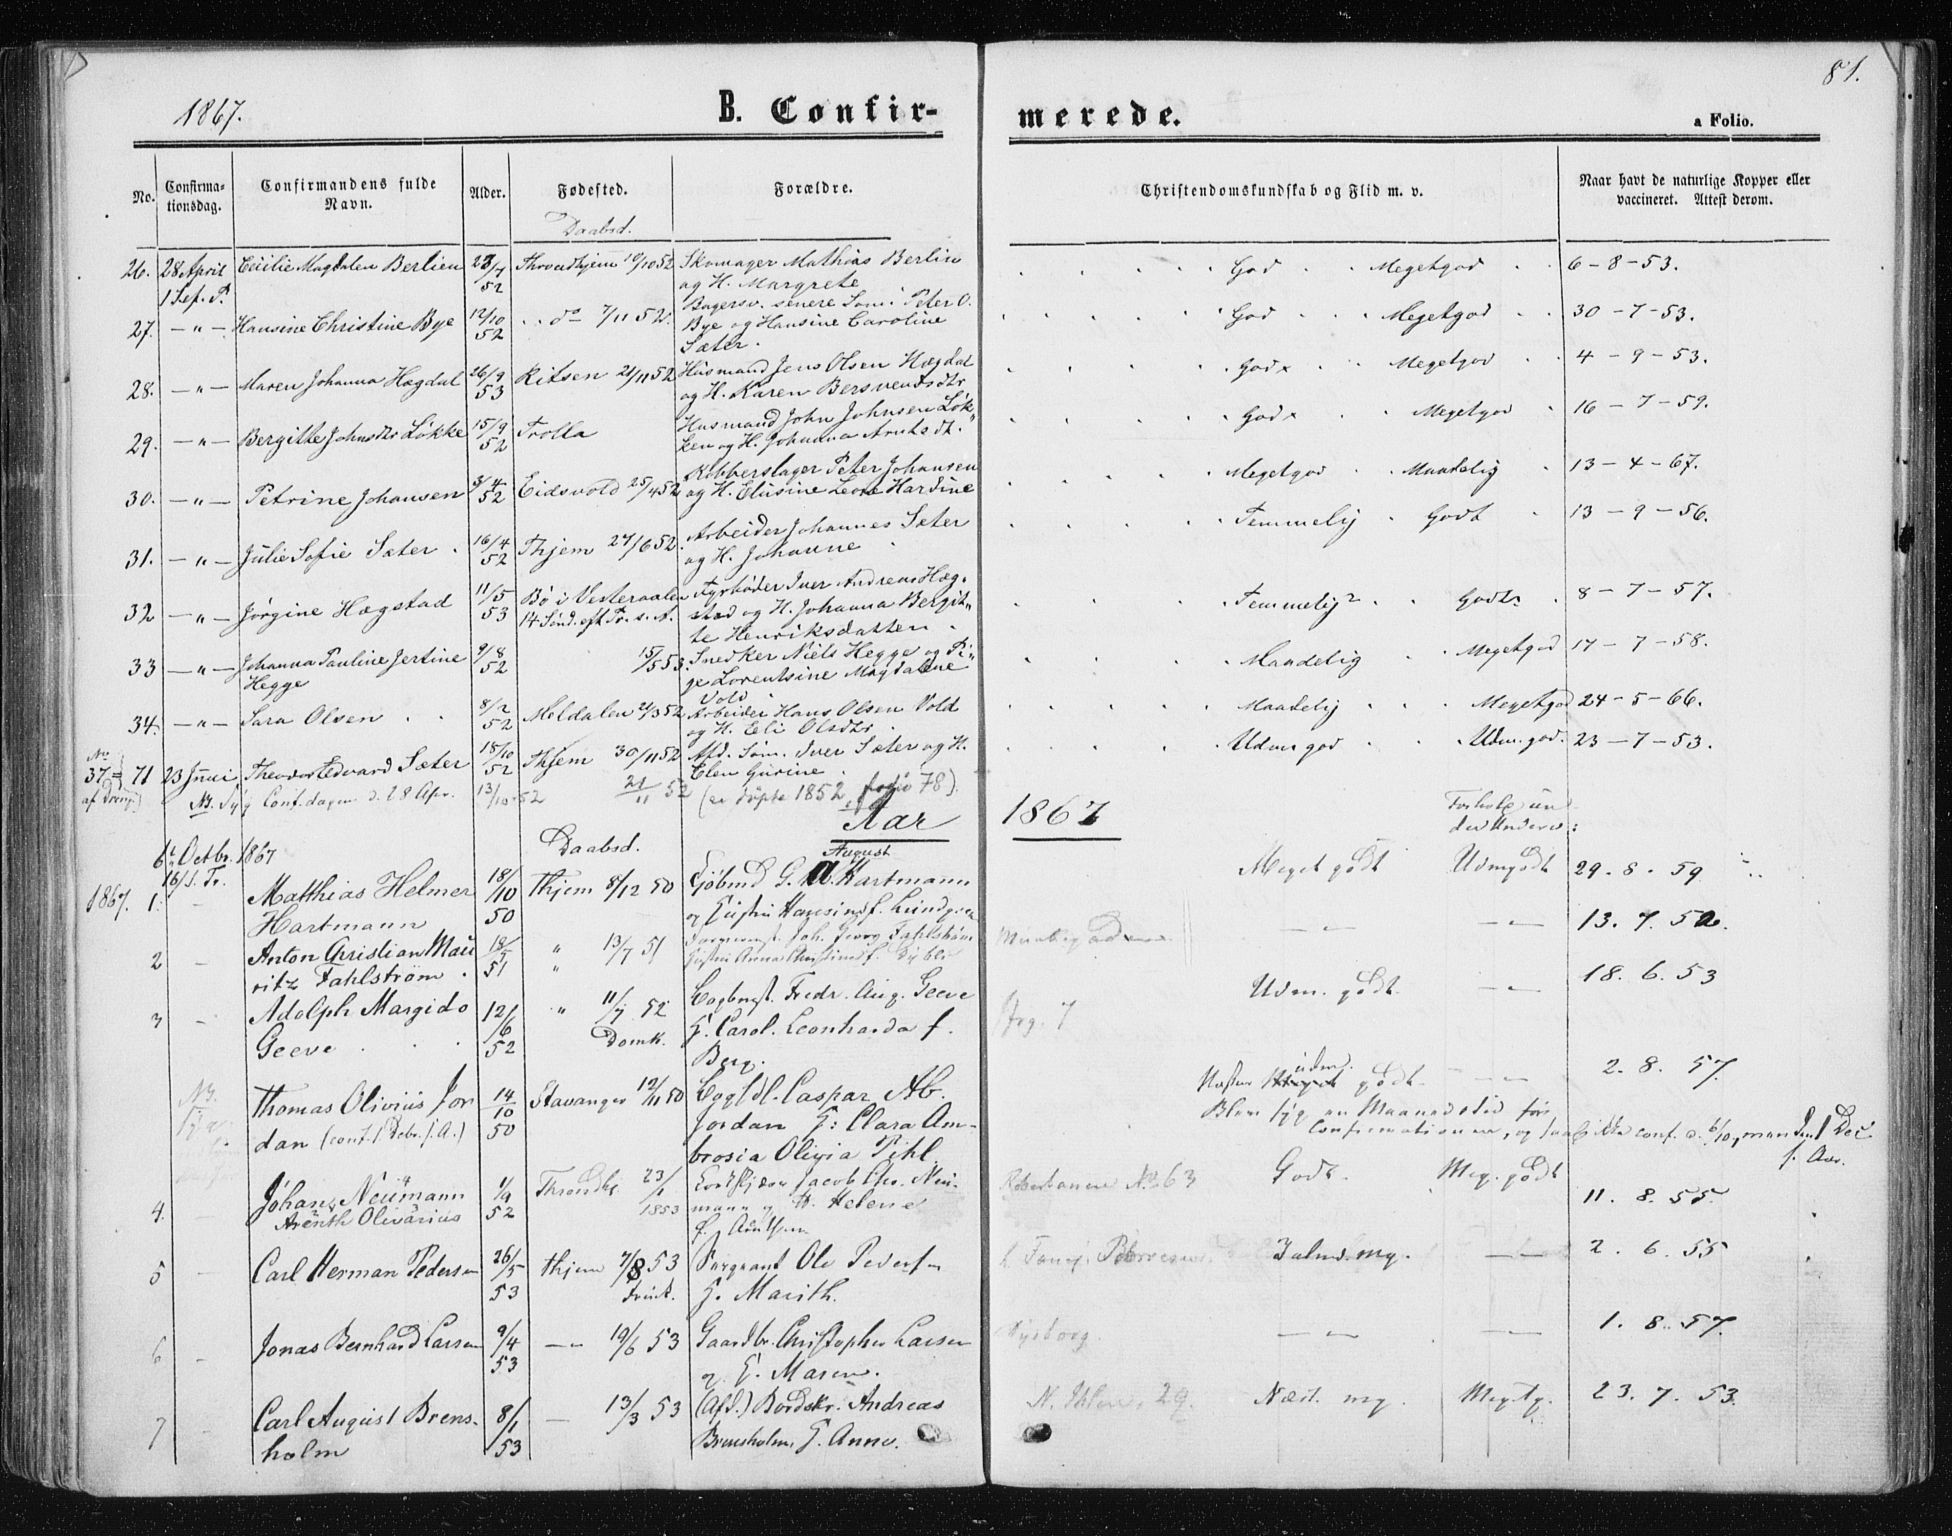 1867.
B. Confir-
merede.
81.
a Folio.
No.
Confirma-
tionsdag.
Confirmandens fulde
Navn.
Alder.
Fødested.
Forældre.
Christendomskundskab og Flid m. v.
Naar havt de naturlige Kopper eller
vaccineret. Attest derom.
Daabsd.
26. 28 April Cecilie Magdalen Berlien 23/7 52 Throndhjem 10/10 52 Skomager Mathias Berlin God Megetgod 6-8-53.
1 Sef. P. og H. Margrete
27. -"- Hansine Christine Bye 12/10 52 do 7/11 52. Bagersv. senere Søm. Peter O. God Megetgod 30-7-53.
Bye og Hansine Caroline
Sæter.
28. -"- Maren Johanna Hægdal 26/9 53 Ritsen 21/11 52 Husmand Jens Olsen Hægdal God Megetgod 4-9-53.
og H. Karen Bersvendsdtr
29. -"- Bergitte Johnsdtr Løkke 15/9 52 Trolla Husmand John Johnsen Løk- God Megetgod 16-7-59.
ken og H. Johanna Arntsdt.
30. -"- Petrine Johansen 3/4 52 Eidsvold 25/4 52 Kobberslager Peter Johansen Megetgod Maadelig 13-4-67.
og H. Elusine Leone Hardine
31. -"- Julie Sofie Sæter 16/4 52 Thjem 27/6 52. Arbeider Johannes Sæter Temmelig Godt 13-9-56.
og H. Johanne
32 -"- Jørgine Hægstad 11/5 53 Bø i Vesteraalen Fyrbøder Iver Andreas Hæg- Temmelig Godt 8-7-57.
14 Sønd. eft Tr. s. A. stad og H. Johanna Bergit-
te Henriksdatter.
33 -"- Johanna Pauline Jertine 9/8 52 15/5 53. Snedker Niels Hegge og Pi- Maadelig Megetgod 17-7-58.
Hegge ge Lorentsine Magdalene
Vold
34. -"- Sara Olsen 8/2 52 Meldalen 21/3 52 Arbeider Hans Olsen Vold Maadelig Megetgod 24-5-66.
og H. Eli Olsdtr.
No
37 = 71 23 Juni Theodor Edvard Sæter 18/10 52 Thjem 30/11 52 Afd. Søm. Iver Sæter og H. Udm god Udm. god. 23-7-53.
af Drenge) Elen Gurine
NB. Syg Conf. dagen d. 28 Apr. 13/10 52 21/11 52 (se døpte 1852 folio 78)
Aar 1867
6te Octbr. 1867 Daabsd.
16/S. Tr. August
1867. 1. Matthias Helmer 18/10 50 Thjem 8/12 50 Kjøbmd G. A. Hartmann Meget godt Udmgodt 29. 8. 59
Hartmann
2 Anton Christian Mau 51 " 13/7 51 13. 7. 52.
ritz Fahlström.
3 Adolph Margido 12/6 52 " 11/7 52 Fredr. Aug. Geeve Udm. godt. 18. 6. 53
Geeve Domk. H. Carol. Leonharda f.
Berg.
Thomas Olivius Jor 14/10 50 Stavanger 12/11 50 Caspar Ab. udm. godt 2. 8. 57.
dan (conf. 1 Decbr. s. A.) Jordan H: Clara Am-
brosia Olivia Pihl.
Blev syg en Maanedstid før
Confirmationen, og ikke conf. d. 6/10, men den 1 Dec
s. Aar.
4. Johan Neumann 1/9 52 Throndhj. 23/1 1853 Jacob Chr. Neu- No 63 Godt. Meg. godt 11. 8. 55.
Arenth Olivarius mann og H. Helene
5 Carl Herman Pedersen 26/5 53 Thjem 7/8 53 Sergeant Ole Pedersen 2. 6. 55
Frue k. H. Marith.
6 Jonas Bernhard Larsen 9/4 53 -"- 19/6 53 Gaardbr. Christopher Larsen 1. 8. 57.
og H. Maren.
7 Carl August Brens- 8/1 53 13/3 53 (Afd.) Bordskr. Andreas N. Ihlen. 29. Næst. mg. Meg. tg. 23. 7. 53.
holm Brensholm, H. Anne.